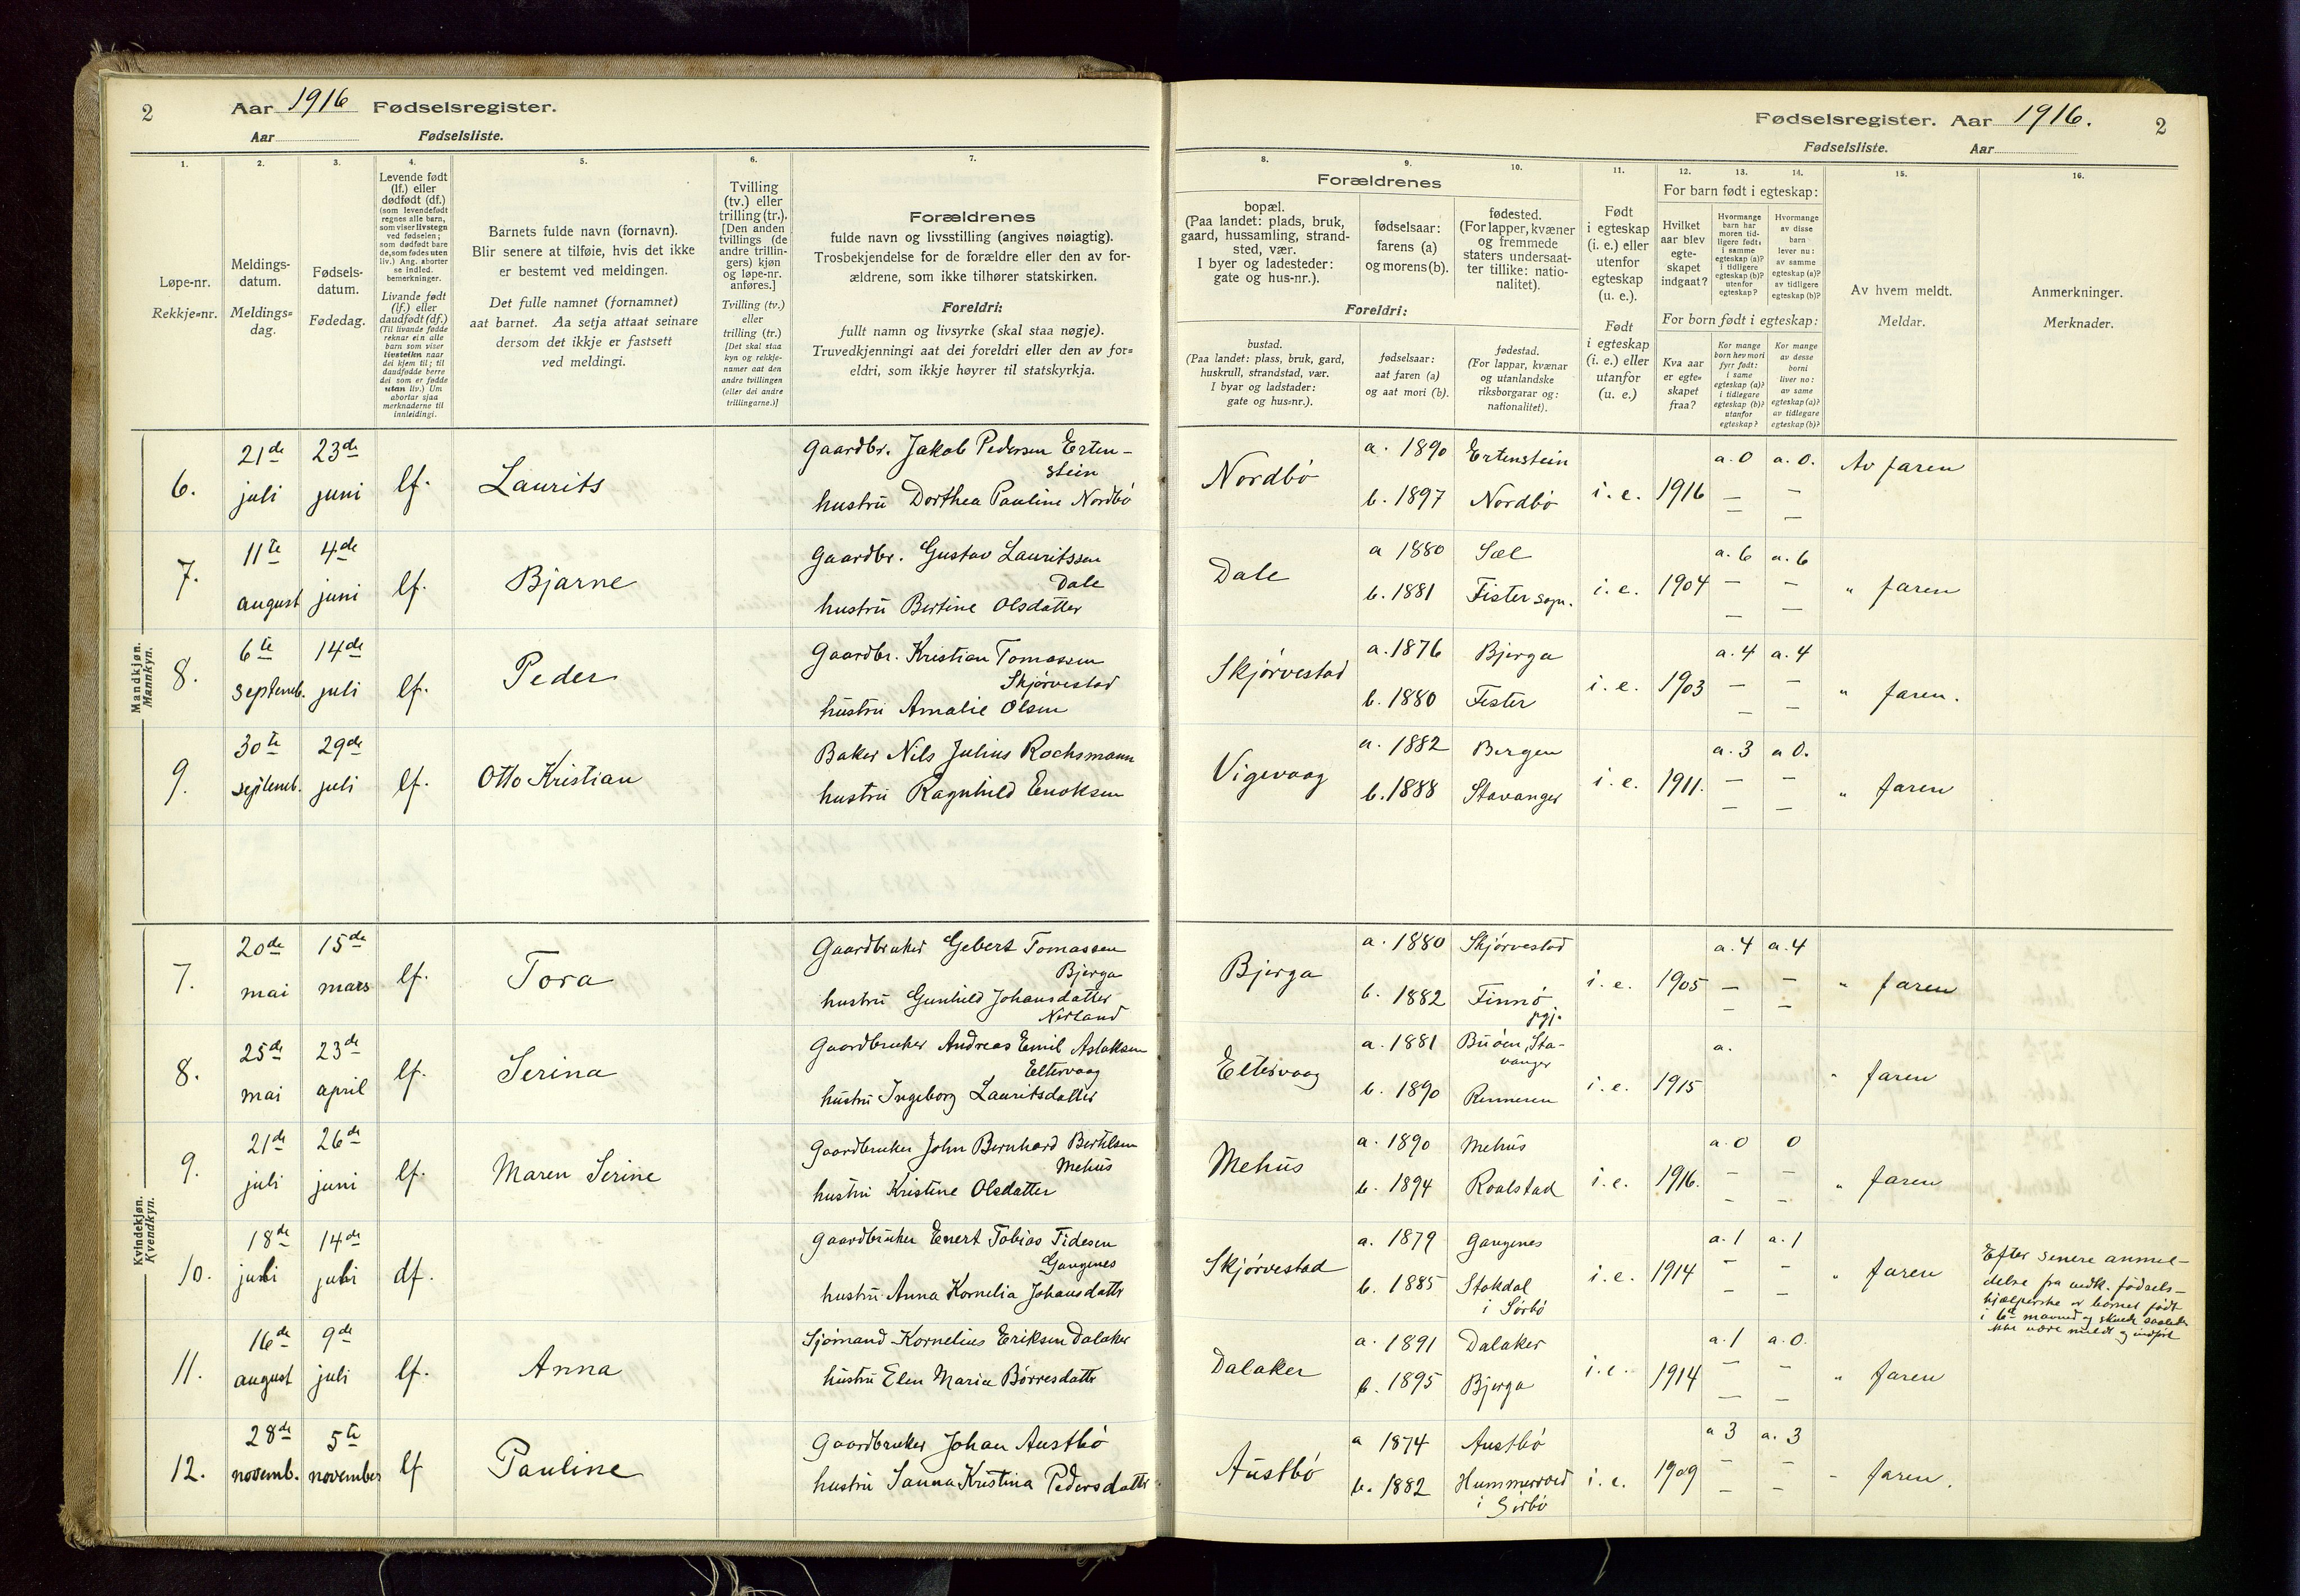 2
Aar 1916 Fødselsregister.
Aar Fødselsliste.
1.
2.
3.
4.
5.
6.
7.
Løpe-nr.
Rekkje=nr.
Meldings-
datum.
Meldings=
dag.
Fødsels-
datum.
Fødedag.
Levende født
(lf.) eller
dødfødt (df.)
(som levendefødt
regnes alle barn,
som viser livstegn
ved fødselen;
som dødfødt bare
de, som fødes uten
liv.) Ang. aborter
se indled.
bemerkninger.
Livande født
(lf.) eller
daudfødt (df.)
(Til livande fødde
reknar ein alle
born som viser
livsteikn naar
dei kjem til; til
daudfødde berre
dei som er fødde
utan liv.) Um
abortar sjaa
merknaderne til
innleidingi.
Barnets fulde navn (fornavn).
Blir senere at tilføie, hvis det ikke
er bestemt ved meldingen.
Det fulle namnet (fornamnet)
aat barnet. Aa setja attaat seinare
dersom det ikkje er fastsett
ved meldingi.
Tvilling
(tv.) eller
trilling (tr.).
[Den anden
tvillings (de
andre trillin-
gers) kjøn
og løpe-nr.
anføres.]
Tvilling (tv.)
eller
trilling (tr.)
[Det skal staa
kyn og rekkje-
numer aat den
andre tvillingen
(eller dei andre
trillingarne.)]
Forældrenes
fulde navn og livsstilling (angives nøiagtig).
Trosbekjendelse for de forældre eller den av for-
ældrene, som ikke tilhører statskirken.
Foreldri:
fullt namn og livsyrke (skal staa nøgje).
Truvedkjenningi aat dei foreldri eller den av for=
eldri, som ikkje høyrer til statskyrkja.
Mandkjøn.
Mannkyn.
6.
21de
juli
23de
juni
lf.
Laurits
Gaardbr. Jakob Pedersen Erten-
stein
hustru Dorthea Pauline Nordbö
7.
11te
august
4de
juni
lf.
Bjarne
Gaardbr. Gustav Lauritssen
Dale
hustru Bertine Olsdatter
8.
6te
septemb.
14de
juli
lf.
Peder
Gaardbr. Kristian Tomassen
Skjörvestad
hustru Amalie Olsen
9.
30te
septemb.
29de
juli
lf.
Otto Kristian
Baker Nils Julius Rochsmann
hustru Ragnhild Enoksen
Kvindekjøn.
Kvendkyn.
7.
20de
mai
15de
mars
lf.
Tora
Gaardbruker Gebert Tomassen
Bjerga
hustru Gunhild Johansdatter
Nerland
8.
25de
mai
23de
april
lf.
Serina
Gaardbruker Andreas Emil Aslaksen
Eltervaag
hustru Ingeborg Lauritsdatter
9.
21de
juli
26de
juni
lf.
Maren Serine
Gaardbruker John Bernhard Bertelsen
Mehus
hustru Kristine Olsdatter
10.
18de
juli
14de
juli
df.
Gaardbruker Enert Tobias Tidesen
Gangenes
hustru Anna Kornelia Johansdattr
11.
16de
august
9de
juli
lf.
Anna
Sjömand Kornelius Eriksen Dalaker
hustru Elen Maria Börresdattr
12.
28de
novemb.
5te
november
lf
Pauline
Gaardbruker Johan Austbö
hustru Sanna Kristina Pedersdattr
Fødselsregister. Aar 1916.
Fødselsliste. Aar
2
8.
9.
10.
11.
12.
13.
14.
15.
16.
Forældrenes
bopæl.
(Paa landet: plads, bruk,
gaard, hussamling, strand-
sted, vær.
I byer og ladesteder:
gate og hus-nr.).
fødselsaar:
farens (a)
og morens (b).
fødested.
(For lapper, kvæner
og fremmede
staters undersaat-
ter tillike: natio-
nalitet).
Foreldri:
bustad.
(Paa landet: plass, bruk, gard,
huskrull, strandstad, vær.
I byar og ladstader:
gate og hus=nr.).
fødselsaar:
aat faren (a)
og aat mori (b).
fødestad.
(For lappar, kvænar
og utanlandske
riksborgarar og:
nationalitet).
Født
i egteskap
(i. e.) eller
utenfor
egteskap
(u. e.).
Født
i egteskap
(i. e.) eller
utanfor
(u. e.)
For barn født i egteskap:
Hvilket
aar blev
egte-
skapet
indgaat?
Hvormange
barn har
moren tid-
ligere født:
i samme
egteskap (a)?
i tidligere
egteskap (b)?
utenfor
egteskap?
Hvormange
av disse
barn
lever nu:
av samme
egteskap (a)?
av tidligere
egteskap (b)?
For born født i egteskap:
Kva aar
er egte=
skapet
fraa?
Kor mange
born hev mori
fyrr født:
i same
egteskap (a)?
i tidlegare
egteskap (b)?
utanfor
egteskap?
Kor mange
av desse
borni
liver no:
av same
egteskap (a)?
av tidlegare
egteskap (b)?
Av hvem meldt.
Meldar.
Anmerkninger.
Merknader.
Nordbö
a. 1890
b. 1897
Ertenstein
Nordbö
i. e.
1916
a. 0
a. 0.
Av faren
Dale
a 1880
b. 1881
Sæl
Fister sogn.
i. e.
1904
a. 6
a. 6
" faren
Skjörvestad
a. 1876
b. 1880
Bjerga
Fister
i. e.
1903
a. 4
a. 4
" faren.
Vigevaag
a. 1882
b. 1888
Bergen
Stavanger
i. e.
1911.
a. 3
a 0.
" faren
Bjerga
a. 1880
b. 1882
Skjörvestad
Finnö
pgj.
i. e.
1905
a. 4
a. 4
" faren
Eltervaag
a. 1881
b. 1890
Buöen, Sta-
vanger
Rennesen
i. e.
1915
a.
" faren
Mehus
a. 1890
b. 1894
Mehus
Roalstad
i. e.
1916.
a. 0
0
" faren
Skjörvestad
a. 1879
b. 1885
Gangenes
Stokdal
i Sörbö
i. e.
1914
a. 1
a. 1
" faren
Efter senere anmel-
delse fra vedk. födsels-
hjælperske er barnet födt
i 6te maaned og skulde saaledes
ikke være meldt og indfört
Dalaker
a. 1891
b. 1895
Dalaker
Bjerga
i. e.
1914
a. 1
a. 0.
" faren
Austbö
a 1874
b. 1882
Austbö
Hummerved
i Sörbö
i. e.
1909
a 3
a. 3
" faren.